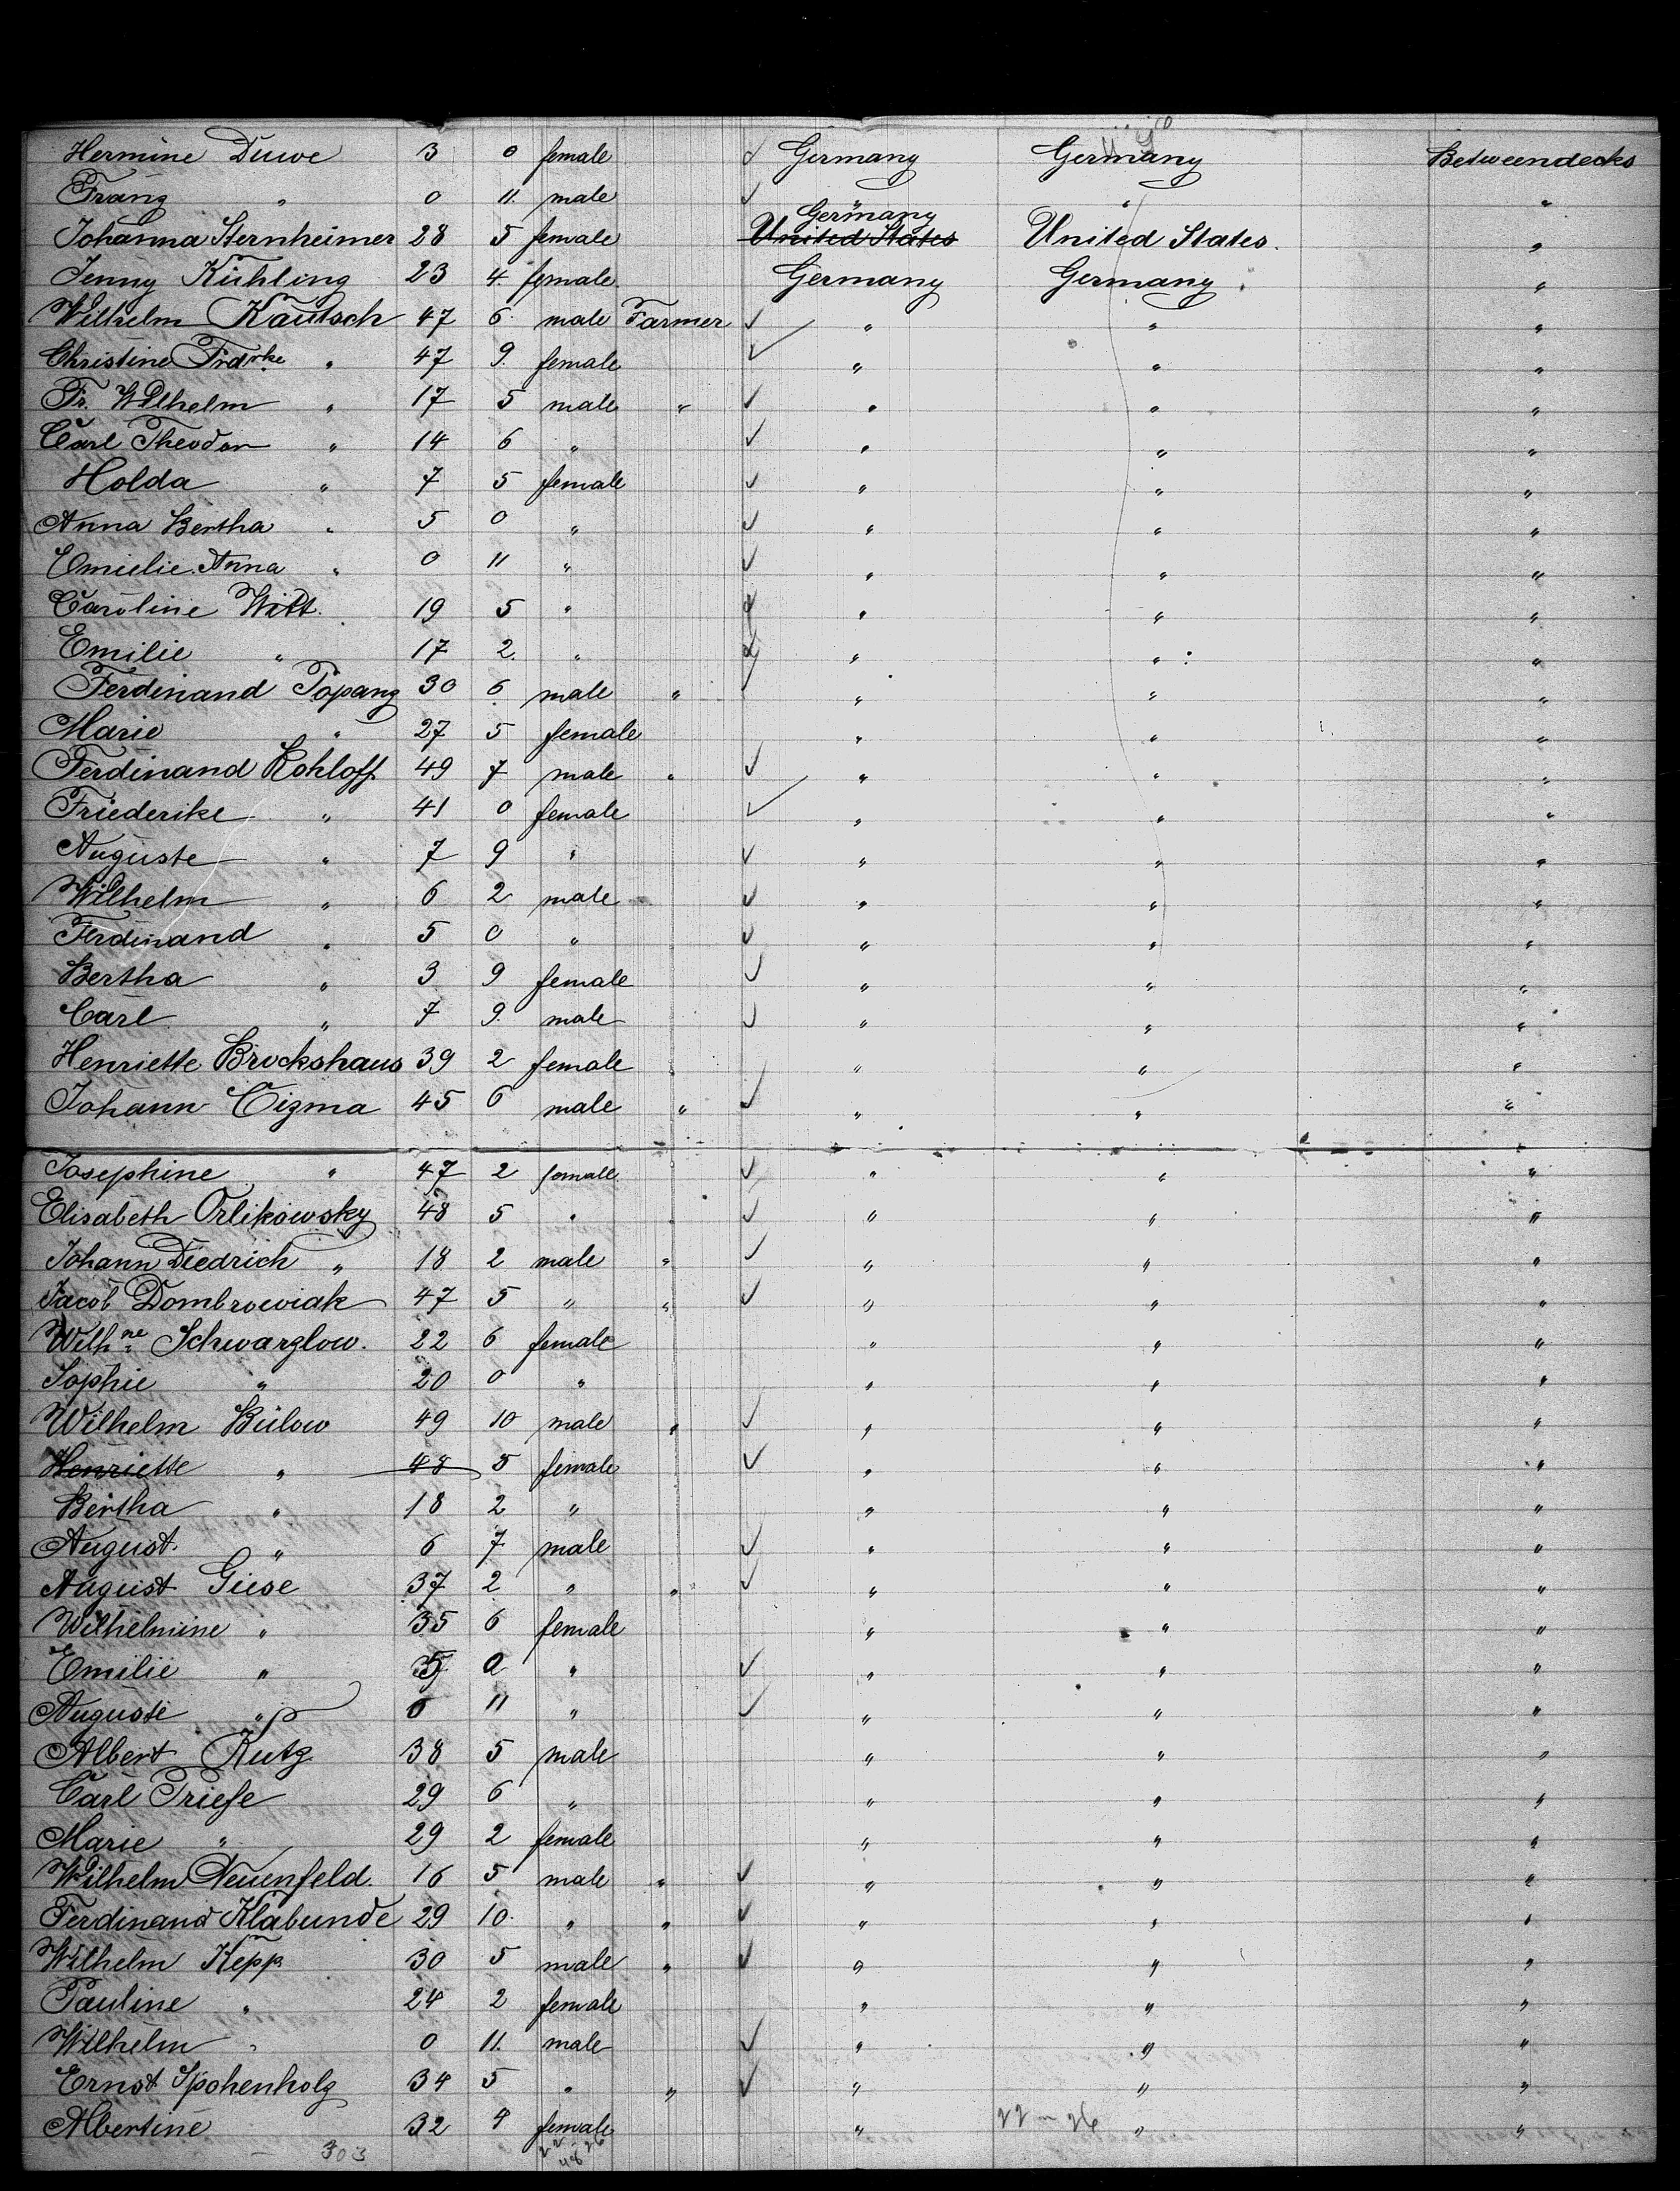 Hermine Duwe 3 0 female Germany Germany Betweendecks
Franz " 0 11. male " " "
Germany
Johanna Sternheimer 28 5 female United States United States. "
Jenny Kühling 23 4. female. Germany Germany. "
Wilhelm Kautsch 47 6 male Farmer " " "
Christine Frdrke " 47 9. female " " "
Fr. Wilhelm " 17 5 male " " " "
Carl Theodor " 14 6 " " " "
Holda " 7 5 female " " "
Anna Bertha " 5 0 " " " "
Emielie Anna " 0 11 " " " "
Caroline Witt. 19 5 " " " "
Emilie " 17 2. " " " "
Ferdinand Popang 30 6 male " " " "
Marie " 27 5 female " " "
Ferdinand Kohloff 49 7 male " " " "
Friederike " 41 0 female " " "
Auguste " 7 9 " " " "
Wilhelm " 6 2 male " " "
Ferdinand " 5 0 " " " "
Bertha " 3 9 female " " "
Carl " 7 9. male " " "
Henriette Brockshaus 39 2 female " " "
Johann Cizma 45 6 male " " " "
Josephine " 47 2 female " " "
Elisabeth Orlikowsky 48 5 " " " "
Johann Diedrich " 18 2 male " " " "
Jacob Dombrowiak 47 5 " " " " "
Wilhne Schwarzlow. 22 6 female " " "
Sophie " 20 0 " " " "
Wilhelm Bülow 49 10 male " " " "
Henriette " 48 5 female " " "
Bertha " 18 2 " " " "
August. " 6 7 male " " "
August Giese 37 2 " " " " "
Wilhelmine " 35 6 female " " "
Emilie " 5 " " " "
Auguste " 0 11 " " " "
Albert Kutz 38 5 male " " "
Carl Priese 29 6 " " " "
Marie " 29 2 female " " "
Wilhelm Neuenfeld. 16 5 male " " " "
Ferdinand Klabunde 29 10. " " " " "
Wilhelm Kepp 30 5 male " " " "
Pauline " 24 2 female " " "
Wilhelm " 0 11. male " " "
Ernst Spohenholz 34 5 " " " " "
Albertine 32 4 female " 22-26 " "
303 22-26
48